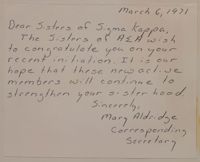 March 6, 1971
Dear Sisters of Sigma Kappa,
The Sisters of AΣA wish
to congratulate you on your
recent initiation. It is our
hope that these new active
members will continue to
strengthen your sisterhood.
Sincerely,
Mary Aldridge
Corresponding
Secretary